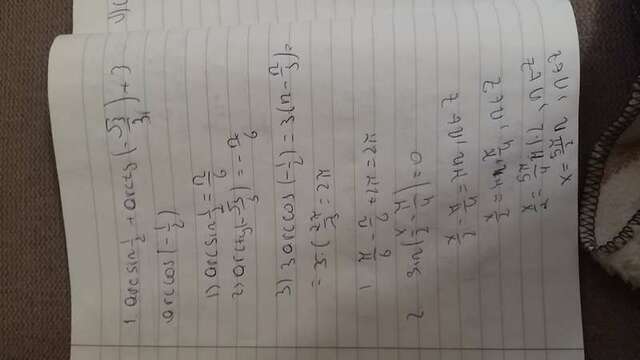 1. arcsin 1/2 + arctg(-√3/3) + 3
arccos(-1/2)
1) arcsin 1/2 = π/6
2) arctg(-√3/3) = -π/6
3) 3 arccos(-1/2) = 3(π - π/3) =
= 3·(2π/3 = 2π
1 π/6 - π/6 + 2π = 2π
2 sin(x/2 - π/4) = 0
x/2 - π/4 = πn, n∈Z
x/2 = πn + π/4, n∈Z
x/2 = 5π/4 n | · 2, n∈Z
x = 5π/2 n, n∈Z